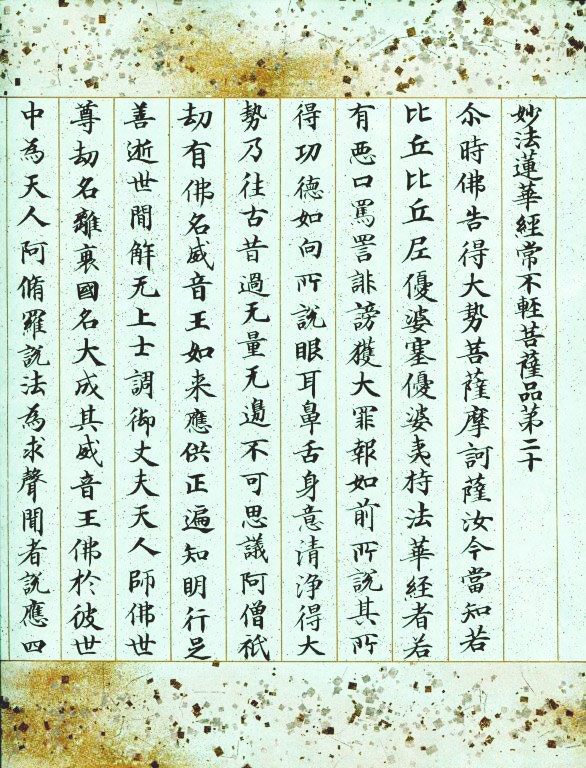 妙法蓮華經常不輕菩薩品第二十
尒時佛告得大勢菩薩摩訶薩汝今當知若
比丘比丘尼優婆塞優婆夷持法華經者若
有惡口罵詈誹謗獲大罪報如前所說其所
得功德如向所說眼耳鼻舌身意清淨得大
勢乃往古昔過无量无邊不可思議阿僧祇
劫有佛名威音王如来應供正遍知明行足
善逝世間解无上士調御丈夫天人師佛世
尊劫名離衰國名大成其威音王佛於彼世
中為天人阿脩羅說法為求聲聞者說應四